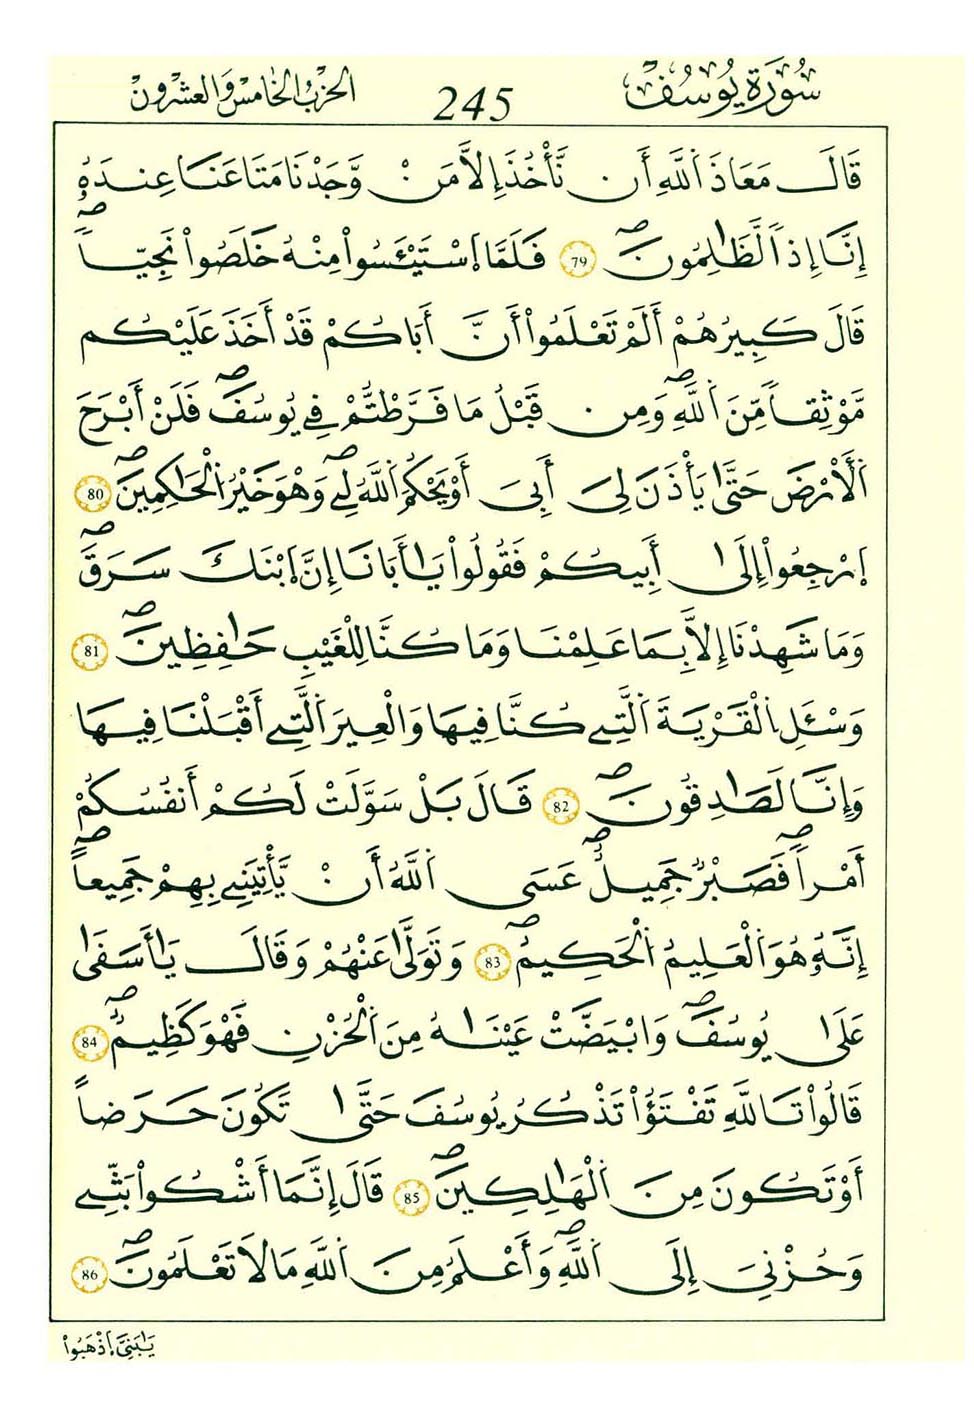 سُورَةُ يُوسُفَ 245 الحِزْبُ الخَامِسُ وَالعِشْرُونَ
قَالَ مَعَاذَ اَللَّهِ أَن نَّأْخُذَ إِلاَّ مَنْ وَّجَدْنَا مَتَاعَنَا عِندَهُۥ
إِنَّا إِذاً لَّظَٰلِمُونَۖ 79 فَلَمَّا اَسْتَيْـَٔسُواْ مِنْهُ خَلَصُواْ نَجِيّاًۖ
قَالَ كَبِيرُهُمْ أَلَمْ تَعْلَمُواْ أَنَّ أَبَاكُمْ قَدْ أَخَذَ عَلَيْكُم
مَّوْثِقاً مِّنَ اَللَّهِۖ وَمِن قَبْلُ مَا فَرَّطتُّمْ فِي يُوسُفَۖ فَلَنْ أَبْرَحَ
اَلْأَرْضَ حَتَّىٰ يَأْذَنَ لِيَ أَبِيَ أَوْ يَحْكُمَ اَللَّهُ لِيۖ وَهْوَ خَيْرُ اُلْحَٰكِمِينَۖ 80
اِرْجِعُواْ إِلَىٰ أَبِيكُمْ فَقُولُواْ يَٰأَبَانَا إِنَّ اَبْنَكَ سَرَقَۖ
وَمَا شَهِدْنَا إِلاَّ بِمَا عَلِمْنَا وَمَا كُنَّا لِلْغَيْبِ حَٰفِظِينَۖ 81
وَسْـَٔلِ اِلْقَرْيَةَ اَلَّتِي كُنَّا فِيهَا وَالْعِيرَ اَلَّتِي أَقْبَلْنَا فِيهَا
وَإِنَّا لَصَٰدِقُونَۖ 82 قَالَ بَلْ سَوَّلَتْ لَكُمْ أَنفُسُكُمْ
أَمْراًۖ فَصَبْرٌ جَمِيلٌۖ عَسَى اَللَّهُ أَنْ يَّأْتِيَنِي بِهِمْ جَمِيعاًۖ
إِنَّهُۥ هُوَ اَلْعَلِيمُ اُلْحَكِيمُۖ 83 وَتَوَلَّىٰ عَنْهُمْ وَقَالَ يَٰأَسَفَىٰ
عَلَىٰ يُوسُفَۖ وَابْيَضَّتْ عَيْنَٰهُ مِنَ اَلْحُزْنِ فَهْوَ كَظِيمٌۖ 84
قَالُواْ تَاللَّهِ تَفْتَؤُاْ تَذْكُرُ يُوسُفَ حَتَّىٰ تَكُونَ حَرَضاً
أَوْ تَكُونَ مِنَ اَلْهَٰلِكِينَۖ 85 قَالَ إِنَّمَا أَشْكُواْ بَثِّي
وَحُزْنِيَ إِلَى اَللَّهِۖ وَأَعْلَمُ مِنَ اَللَّهِ مَا لاَ تَعْلَمُونَۖ 86
يَٰبَنِيَّ اَذْهَبُواْ